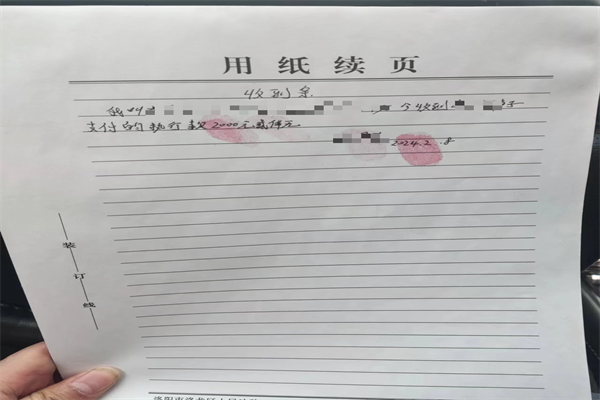 用纸续页
收到条
我叫 今收到
支付的执行款2000元贰仟元
2024.2.8
装订线